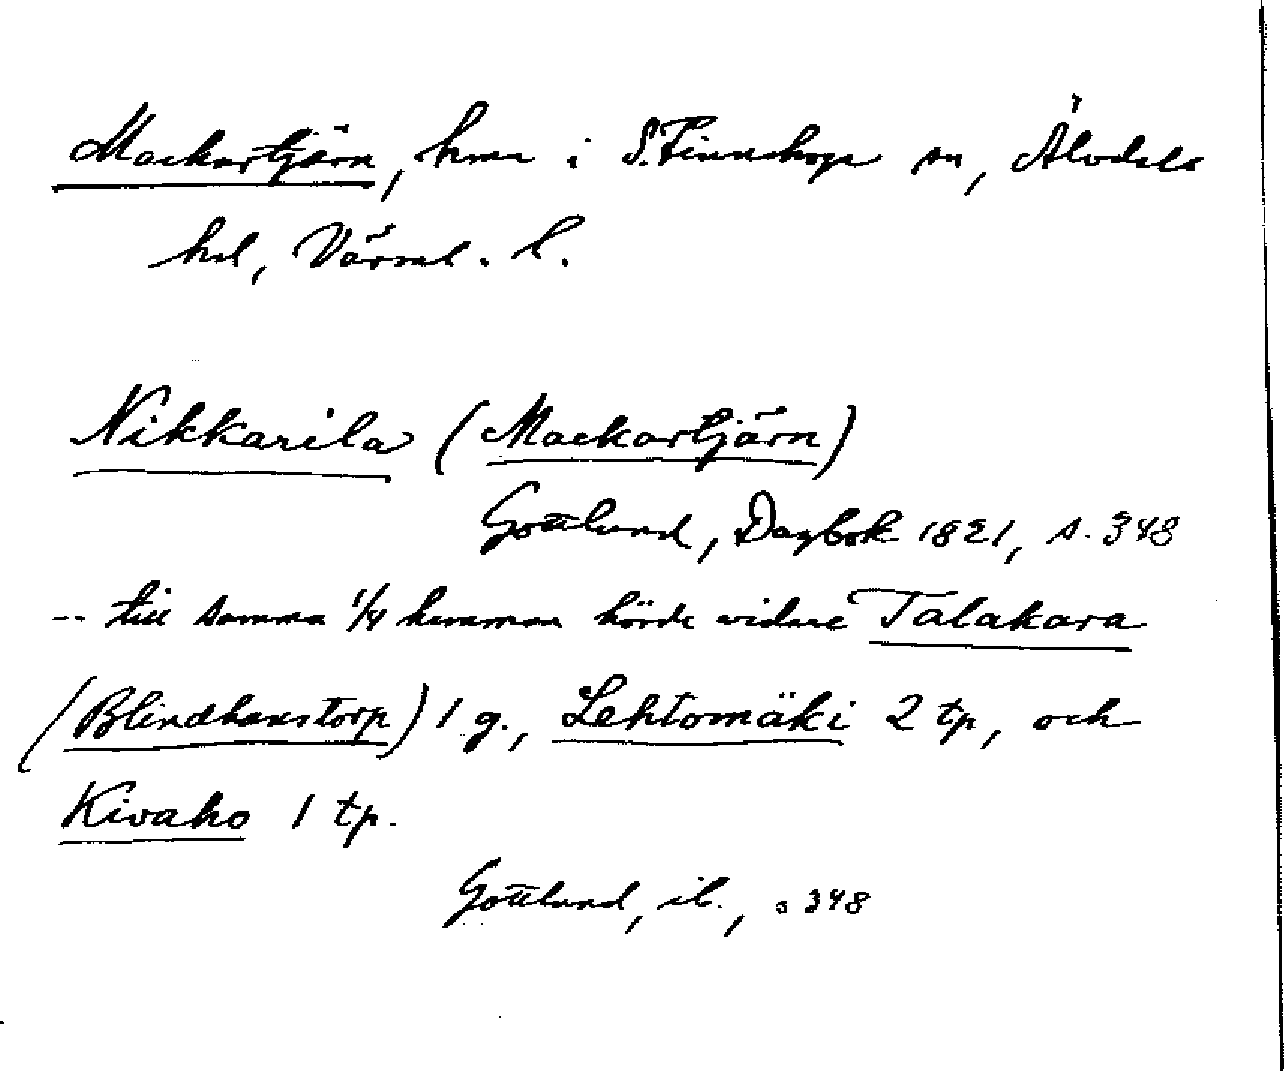 Mackartjärn, hmn i S. Finnskoga sn, Älvdals
hd, Värml. l.
Nikkarila (Mackartjärn)
Gottlund, Dagbok 1821, s. 348
-- till samma 1/4 hemman hörde vidare Talakara
(Blindhanstorp) 1 g., Lehtomäki 2 tp, och
Kivaho 1 tp.
Gottlund, ib., s 348